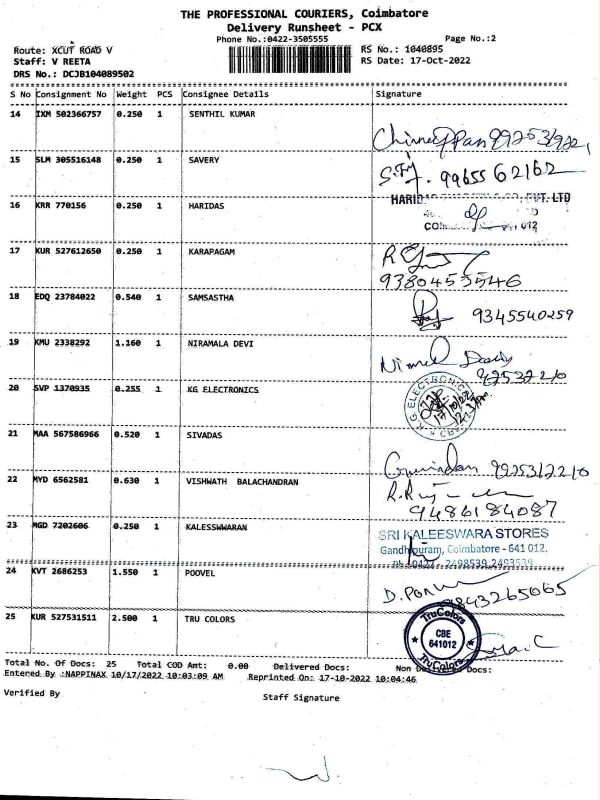 THE PROFESSIONAL COURIERS, Coimbatore
Delivery Runsheet - PCX
Phone No.:0422-3505555 Page No.:2
Route: XCUT ROAD V RS No.: 1040895
Staff: V REETA RS Date: 17-Oct-2022
DRS No.: DCJB104089502
S No Consignment No Weight PCS Consignee Details Signature
14 IXM 502366757 0.250 1 SENTHIL KUMAR
15 SLM 305516148 0.250 1 SAVERY
9965562162
16 KRR 770156 0.250 1 HARIDAS
HARIDAS PVT. LTD
17 KUR 527612650 0.250 1 KARAPAGAM
9380455546
18 EDQ 23784022 0.540 1 SAMSASTHA
9345540259
19 KMU 2338292 1.160 1 NIRAMALA DEVI
20 SVP 1370935 0.255 1 KG ELECTRONICS
KG ELECTRONICS
21 MAA 567586966 0.520 1 SIVADAS
22 MYD 6562581 0.630 1 VISHWATH BALACHANDRAN
9486184087
23 MGD 7202606 0.250 1 KALESSWWARAN
SRI KALEESWARA STORES
Gandhipuram, Coimbatore - 641 012.
Ph: 0424 - 2498539, 2493539
24 KVT 2686253 1.550 1 POOVEL
9843265065
25 KUR 527531511 2.500 1 TRU COLORS
TruColors
CBE
641012
TruColors
Total No. Of Docs: 25 Total COD Amt: 0.00 Delivered Docs: Non Delivered Docs:
Entered By :NAPPINAX 10/17/2022 10:03:09 AM Reprinted On: 17-10-2022 10:04:46
Verified By Staff Signature